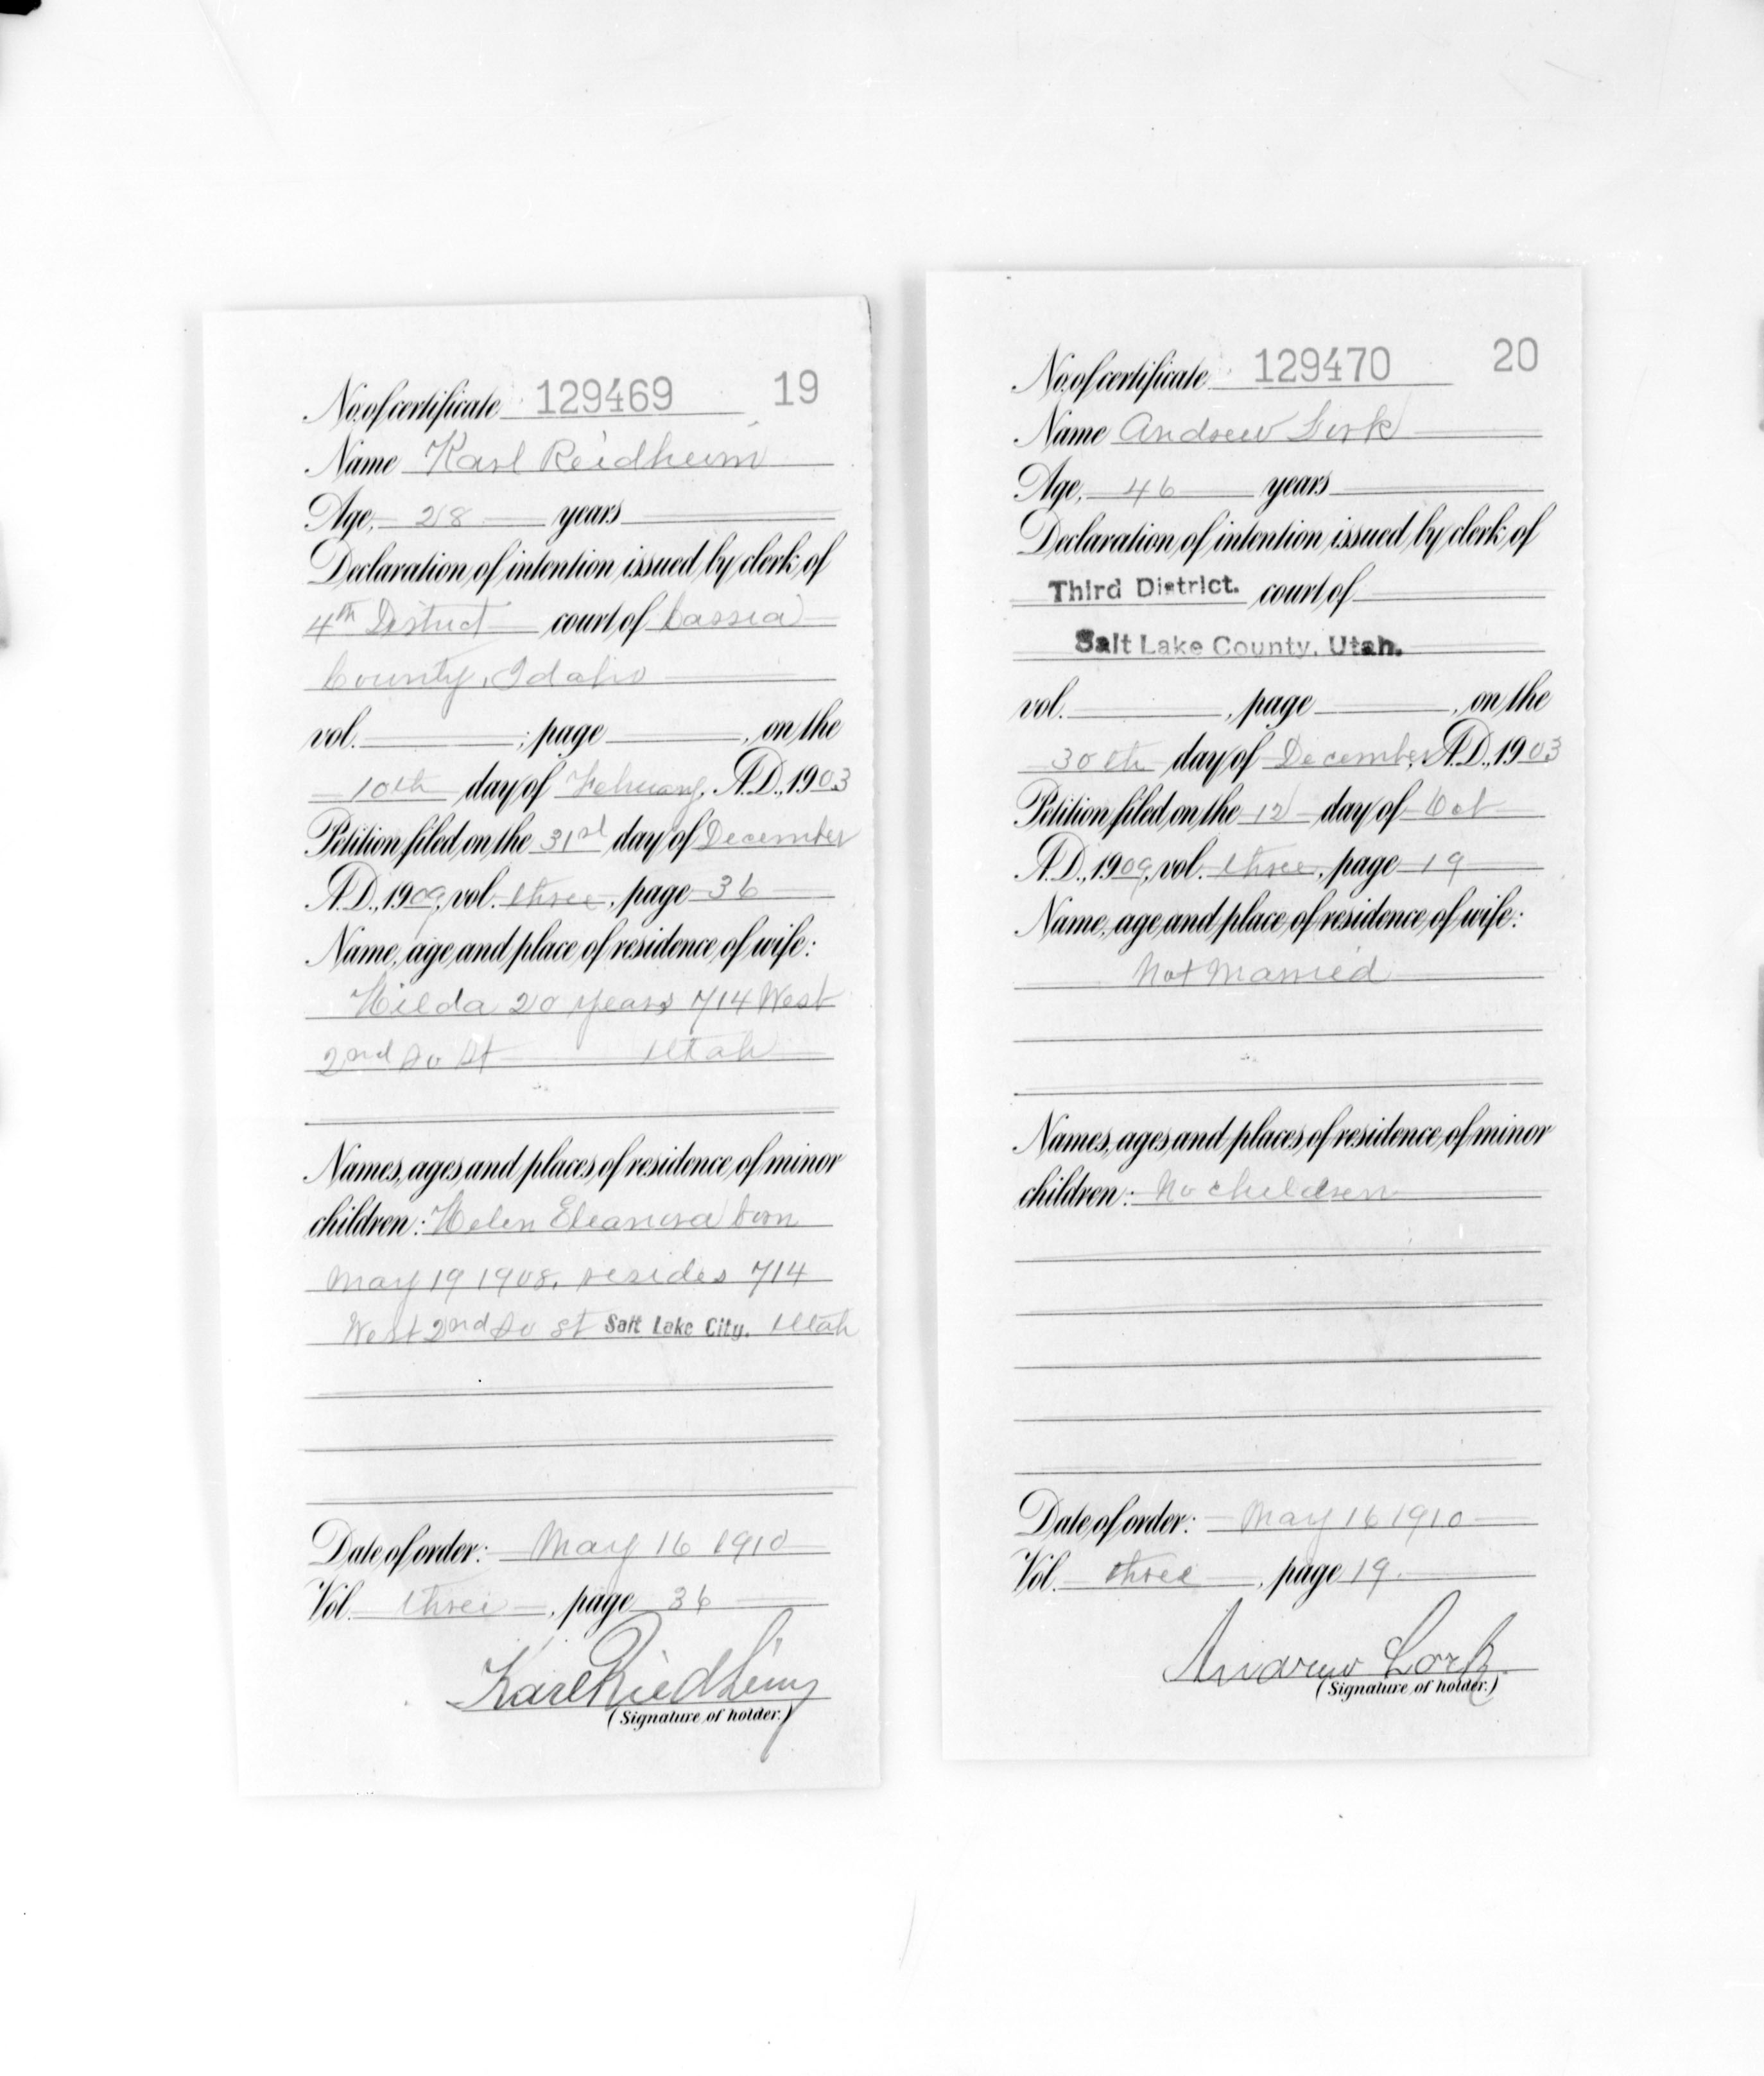 No. of certificate 129469 19
Name Karl Reidheim
Age, 28 years
Declaration of intention issued by clerk of
4th District court of Cassia
County, Idaho
vol. , page , on the
10th day of February, A.D., 1903
Petition filed on the 31st day of December
A.D., 1909, vol. three, page 36
Name, age and place of residence of wife:
Hilda 20 years 714 West
2nd So St Utah
Names, ages and places of residence of minor
children: Helen Eleanora born
May 19 1908. resides 714
West 2nd So St Salt Lake City. Utah
Date of order: May 16 1910
Vol. three, page 36
Karl
(Signature of holder.)
No. of certificate 129470 20
Name Andrew
Age, 46 years
Declaration of intention issued by clerk of
Third District. court of
Salt Lake County, Utah.
vol. , page , on the
30th day of December, A.D., 1903
Petition filed on the 12 day of Oct
A.D., 1909, vol. three, page 19
Name, age and place of residence of wife:
Not Married
Names, ages and places of residence of minor
children: No children
Date of order: May 16 1910
Vol. three, page 19.
Andrew
(Signature of holder.)